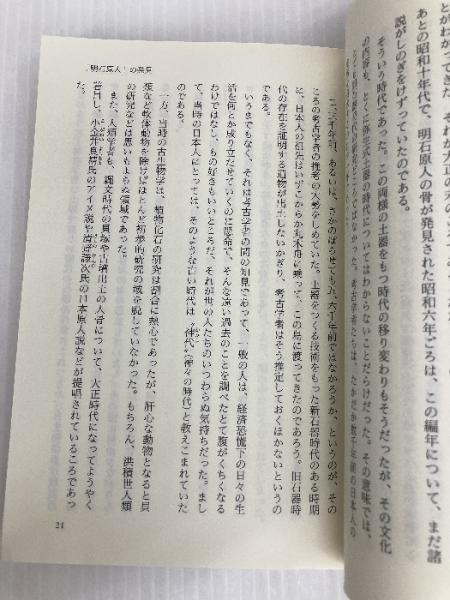 とがわかってきた。それが大正の
あとの昭和十年代で、明石原人の骨が発見された昭和六年ごろは、この編年について、まだ諸
説がしのぎをけずっていたのである。
そういう時代であった。この両様の土器をもつ時代の移り変わりもそうだったが、その文化
の内容も、とくに弥生式土器の時代についてはわからないことだらけだった。その意味では、
考古学者たちは、たかだか数千年前の日本人の
「明石原人」の発見
二、三千年前、あるいは、さかのぼらせても五、六千年前ではなかろうか、というのが、その
ころの考古学者の推考の大勢をしめていた。土器をつくる技術をもった新石器時代のある時期
に、日本人の祖先はいずこからか丸木舟に乗って、この島に渡ってきたのであろう。旧石器時
代の存在を証明する遺物が出土しないかぎり、考古学者はそう推定しておくほかないのであ
る。
いうまでもなく、それは考古学者の間の知見であって、一般の人は、経済恐慌下の日々の生
活を何とか成り立たせていくのに懸命で、そんな遠い過去のことを調べたとて腹がくちくなる
わけではなし、もの好きもいいところだ、それが世の人たちのいつわらぬ気持ちだった。まし
て、当時の日本人にとっては、そのような古い時代は〝神代〟（神々の時代）と教えこまれていた
のである。
一方、当時の古生物学は、植物化石の研究は割合に熱心であったが、肝心な動物となると貝
類など軟体動物を除けばほとんど初歩的研究の域を脱していなかった。もちろん、洪積世人類
の研究などは思いもよらぬ領域であった。
また、人類学者も、縄文時代の貝塚や古墳出土の人骨について、大正時代になってようやく
着目し、小金井良精氏のアイヌ説や清野謙次氏の日本原人説などが提唱されているころであっ
た。
21